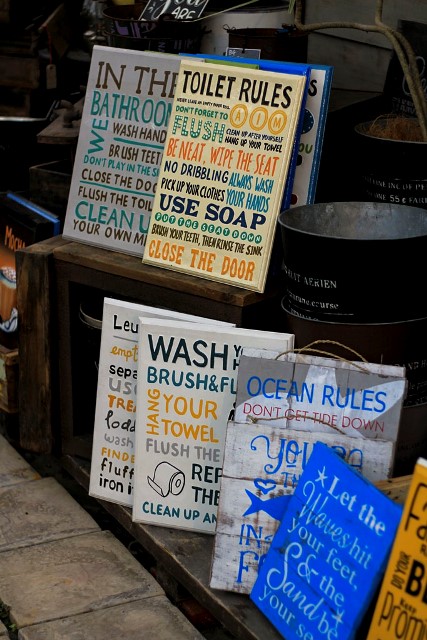 ARE
IN THE
BATHROOM
WASH HAND
BRUSH TEET
DON'T PLAY IN THE
CLOSE THE DOO
FLUSH THE TOIL
CLEAN U
YOUR OWN M
TOILET RULES
NEVER LEAVE AN EMPTY ROLL
DON'T FORGET TO
FLUSH
AIM
CLEAN UP AFTER YOURSELF
HANG UP YOUR TOWEL
BE NEAT, WIPE THE SEAT
NO DRIBBLING ALWAYS WASH
PICK UP YOUR CLOTHES YOUR HANDS
USE SOAP
PUT THE SEAT DOWN
BRUSH YOUR TEETH, THEN RINSE THE SINK
CLOSE THE DOOR
AERIEN
course
Leu
empt
sepa
use
TREA
load
wash
FINDE
fluff
iron i
WASH Y
BRUSH&FL
HANG YOUR
TOWEL
FLUSH THE
REP
THE
CLEAN UP AN
OCEAN RULES
DON'T GET TIDE DOWN
Let the
Waves hit
your feet,
& the
Sand be
your so